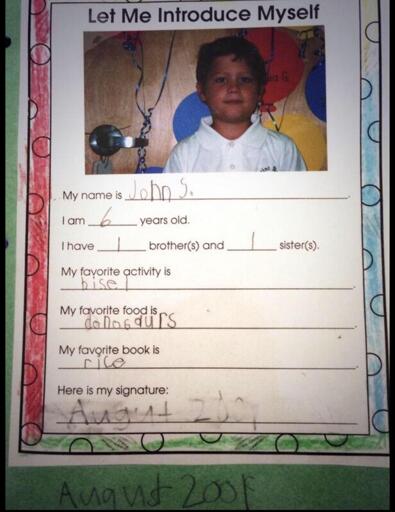 Let Me Introduce Myself
My name is John S.
I am 6 years old.
I have 1 brother(s) and 1 sister(s).
My favorite activity is
My favorite food is
My favorite book is
Here is my signature:
August
August